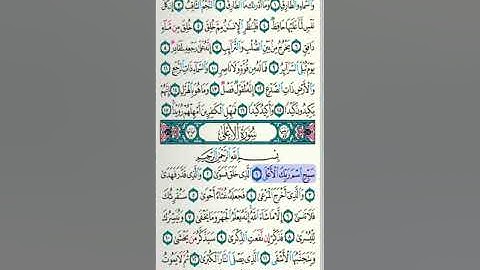 وَٱلسَّمَآءِ وَٱلطَّارِقِ ١ وَمَآ أَدْرَىٰكَ مَا ٱلطَّارِقُ ٢ ٱلنَّجْمُ ٱلثَّاقِبُ ٣ إِن كُلُّ
نَفْسٍ لَّمَّا عَلَيْهَا حَافِظٌ ٤ فَلْيَنظُرِ ٱلْإِنسَٰنُ مِمَّ خُلِقَ ٥ خُلِقَ مِن مَّآءٍ
دَافِقٍ ٦ يَخْرُجُ مِنۢ بَيْنِ ٱلصُّلْبِ وَٱلتَّرَآئِبِ ٧ إِنَّهُۥ عَلَىٰ رَجْعِهِۦ لَقَادِرٌ ٨
يَوْمَ تُبْلَى ٱلسَّرَآئِرُ ٩ فَمَا لَهُۥ مِن قُوَّةٍ وَلَا نَاصِرٍ ١٠ وَٱلسَّمَآءِ ذَاتِ ٱلرَّجْعِ ١١
وَٱلْأَرْضِ ذَاتِ ٱلصَّدْعِ ١٢ إِنَّهُۥ لَقَوْلٌ فَصْلٌ ١٣ وَمَا هُوَ بِٱلْهَزْلِ ١٤ إِنَّهُمْ
يَكِيدُونَ كَيْدًا ١٥ وَأَكِيدُ كَيْدًا ١٦ فَمَهِّلِ ٱلْكَٰفِرِينَ أَمْهِلْهُمْ رُوَيْدًۢا ١٧
سُورَةُ الأَعْلَى
بِسْمِ ٱللَّهِ ٱلرَّحْمَٰنِ ٱلرَّحِيمِ
سَبِّحِ ٱسْمَ رَبِّكَ ٱلْأَعْلَى ١ ٱلَّذِى خَلَقَ فَسَوَّىٰ ٢ وَٱلَّذِى قَدَّرَ فَهَدَىٰ
٣ وَٱلَّذِىٓ أَخْرَجَ ٱلْمَرْعَىٰ ٤ فَجَعَلَهُۥ غُثَآءً أَحْوَىٰ ٥ سَنُقْرِئُكَ
فَلَا تَنسَىٰٓ ٦ إِلَّا مَا شَآءَ ٱللَّهُ إِنَّهُۥ يَعْلَمُ ٱلْجَهْرَ وَمَا يَخْفَىٰ ٧ وَنُيَسِّرُكَ
لِلْيُسْرَىٰ ٨ فَذَكِّرْ إِن نَّفَعَتِ ٱلذِّكْرَىٰ ٩ سَيَذَّكَّرُ مَن يَخْشَىٰ ١٠
وَيَتَجَنَّبُهَا ٱلْأَشْقَى ١١ ٱلَّذِى يَصْلَى ٱلنَّارَ ٱلْكُبْرَىٰ ١٢ ثُمَّ لَا يَمُوتُ